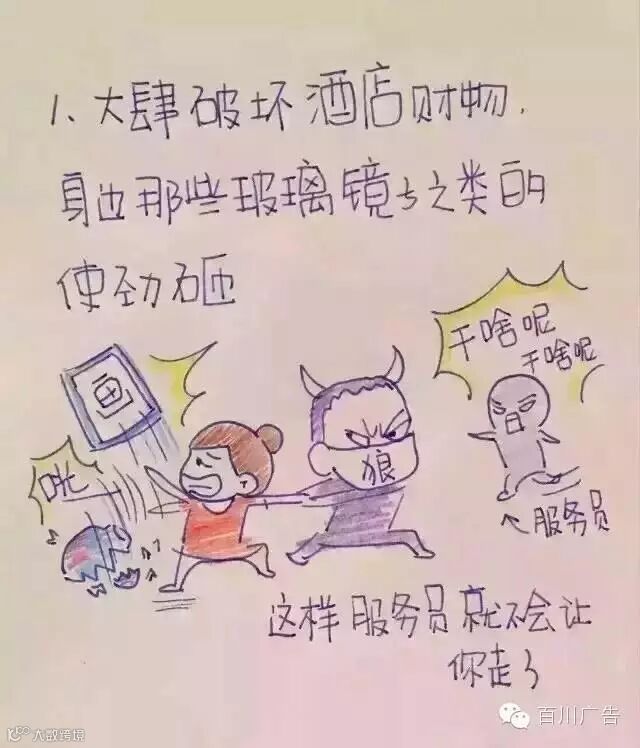 1、大肆破坏酒店财物,
身边那些玻璃镜子之类的
使劲砸
干啥呢
干啥呢
画
咣
狼
←服务员
这样服务员就不会让
你走了
百川广告
大数跨境